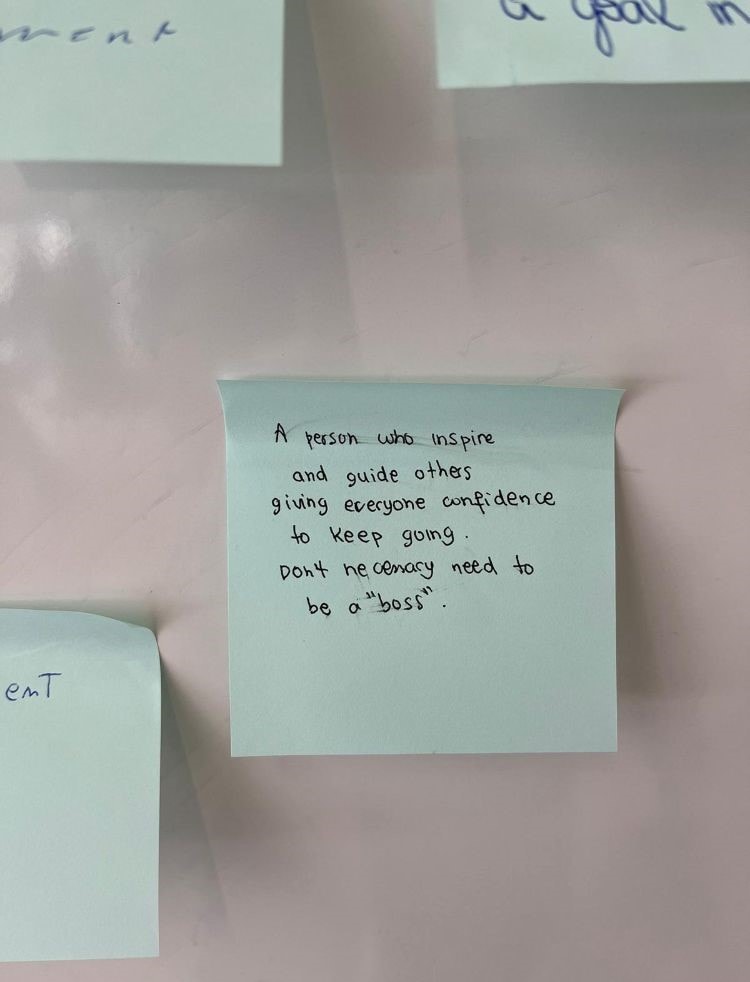 a goal
A person who inspire
and guide others
giving everyone confidence
to keep going.
Don't necenary need to
be a "boss".